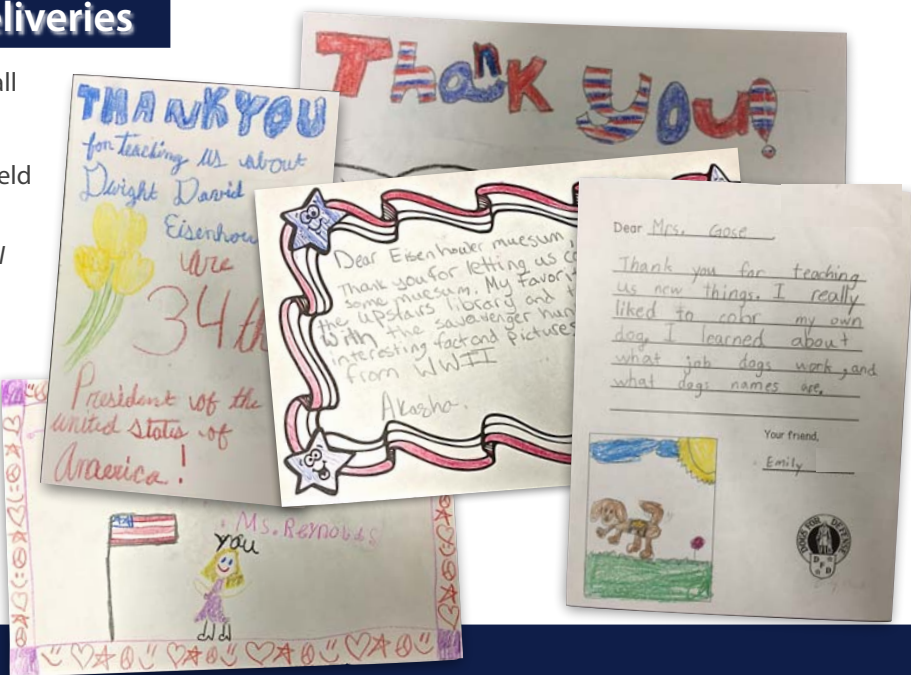 eliveries
all
eld
Thank you!
THANKYOU
for teaching us about
Dwight David
Eisenhow
are
34th
President of the
united states of
America!
Dear Eisenhower muesum,
Thank you for letting us c
some muesum. My favori
the upstairs library and t
With the savavenger hun
interesting fact and pictures
from WWII
Akasha.
Dear Mrs. Gose
Thank you for teaching
us new things. I really
liked to color my own
dog, I learned about
what job dogs work, and
what dogs names are.
Your friend,
Emily
DOGS FOR DEFENSE
D F D
Ms. Reynolds
you